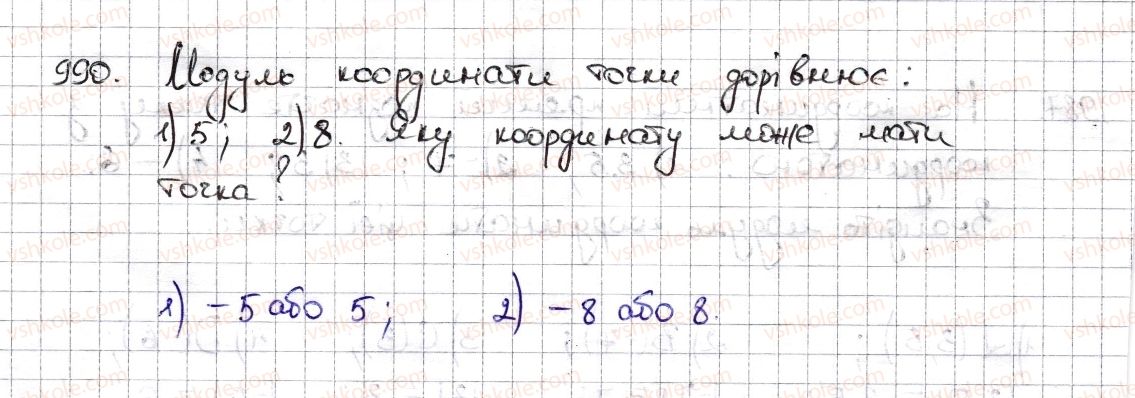 990. Модуль координати точки дорівнює:
1) 5; 2) 8. Яку координату може мати
точка?
1) – 5 або 5; 2) – 8 або 8.